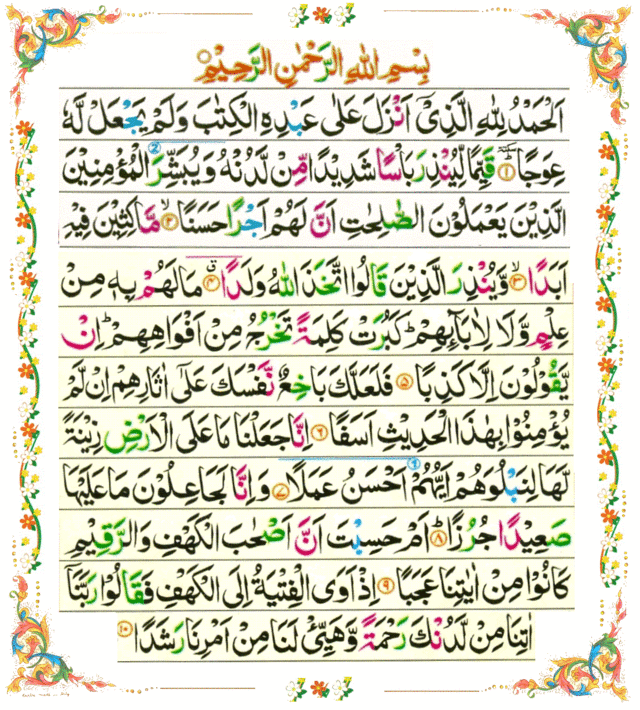 بِسْمِ اللهِ الرَّحْمٰنِ الرَّحِيْمِ
اَلْحَمْدُ لِلّٰهِ الَّذِيْۤ اَنْزَلَ عَلٰى عَبْدِهِ الْكِتٰبَ وَلَمْ يَجْعَلْ لَّهٗ
عِوَجًا ۜ ؕ ۱ قَيِّمًا لِّيُنْذِرَ بَاْسًا شَدِيْدًا مِّنْ لَّدُنْهُ وَ يُبَشِّرَ ② الْمُؤْمِنِيْنَ
الَّذِيْنَ يَعْمَلُوْنَ الصّٰلِحٰتِ اَنَّ لَهُمْ اَجْرًا حَسَنًا ۙ ۲ مَّاكِثِيْنَ فِيْهِ
اَبَدًا ۙ ۳ وَّيُنْذِرَ الَّذِيْنَ قَالُوا اتَّخَذَ اللهُ وَلَدًا ۗ ۴ مَا لَهُمْ بِهٖ مِنْ
عِلْمٍ وَّلَا لِاٰبَآئِهِمْ ؕ كَبُرَتْ كَلِمَةً تَخْرُجُ مِنْ اَفْوَاهِهِمْ ؕ اِنْ
يَّقُوْلُوْنَ اِلَّا كَذِبًا ۵ فَلَعَلَّكَ بَاخِعٌ نَّفْسَكَ عَلٰۤى اٰثَارِهِمْ اِنْ لَّمْ
يُؤْمِنُوْا بِهٰذَا الْحَدِيْثِ اَسَفًا ۶ اِنَّا جَعَلْنَا مَا عَلَى الْاَرْضِ زِيْنَةً
لَّهَا لِنَبْلُوَهُمْ اَيُّهُمْ اَحْسَنُ عَمَلًا ۷ وَ اِنَّا لَجَاعِلُوْنَ مَا عَلَيْهَا
صَعِيْدًا جُرُزًا ؕ ۸ اَمْ حَسِبْتَ اَنَّ اَصْحٰبَ الْكَهْفِ وَالرَّقِيْمِ
كَانُوْا مِنْ اٰيٰتِنَا عَجَبًا ۹ اِذْ اَوَى الْفِتْيَةُ اِلَى الْكَهْفِ فَقَالُوْا رَبَّنَاۤ
اٰتِنَا مِنْ لَّدُنْكَ رَحْمَةً وَّهَيِّئْ لَنَا مِنْ اَمْرِنَا رَشَدًا ۱۰